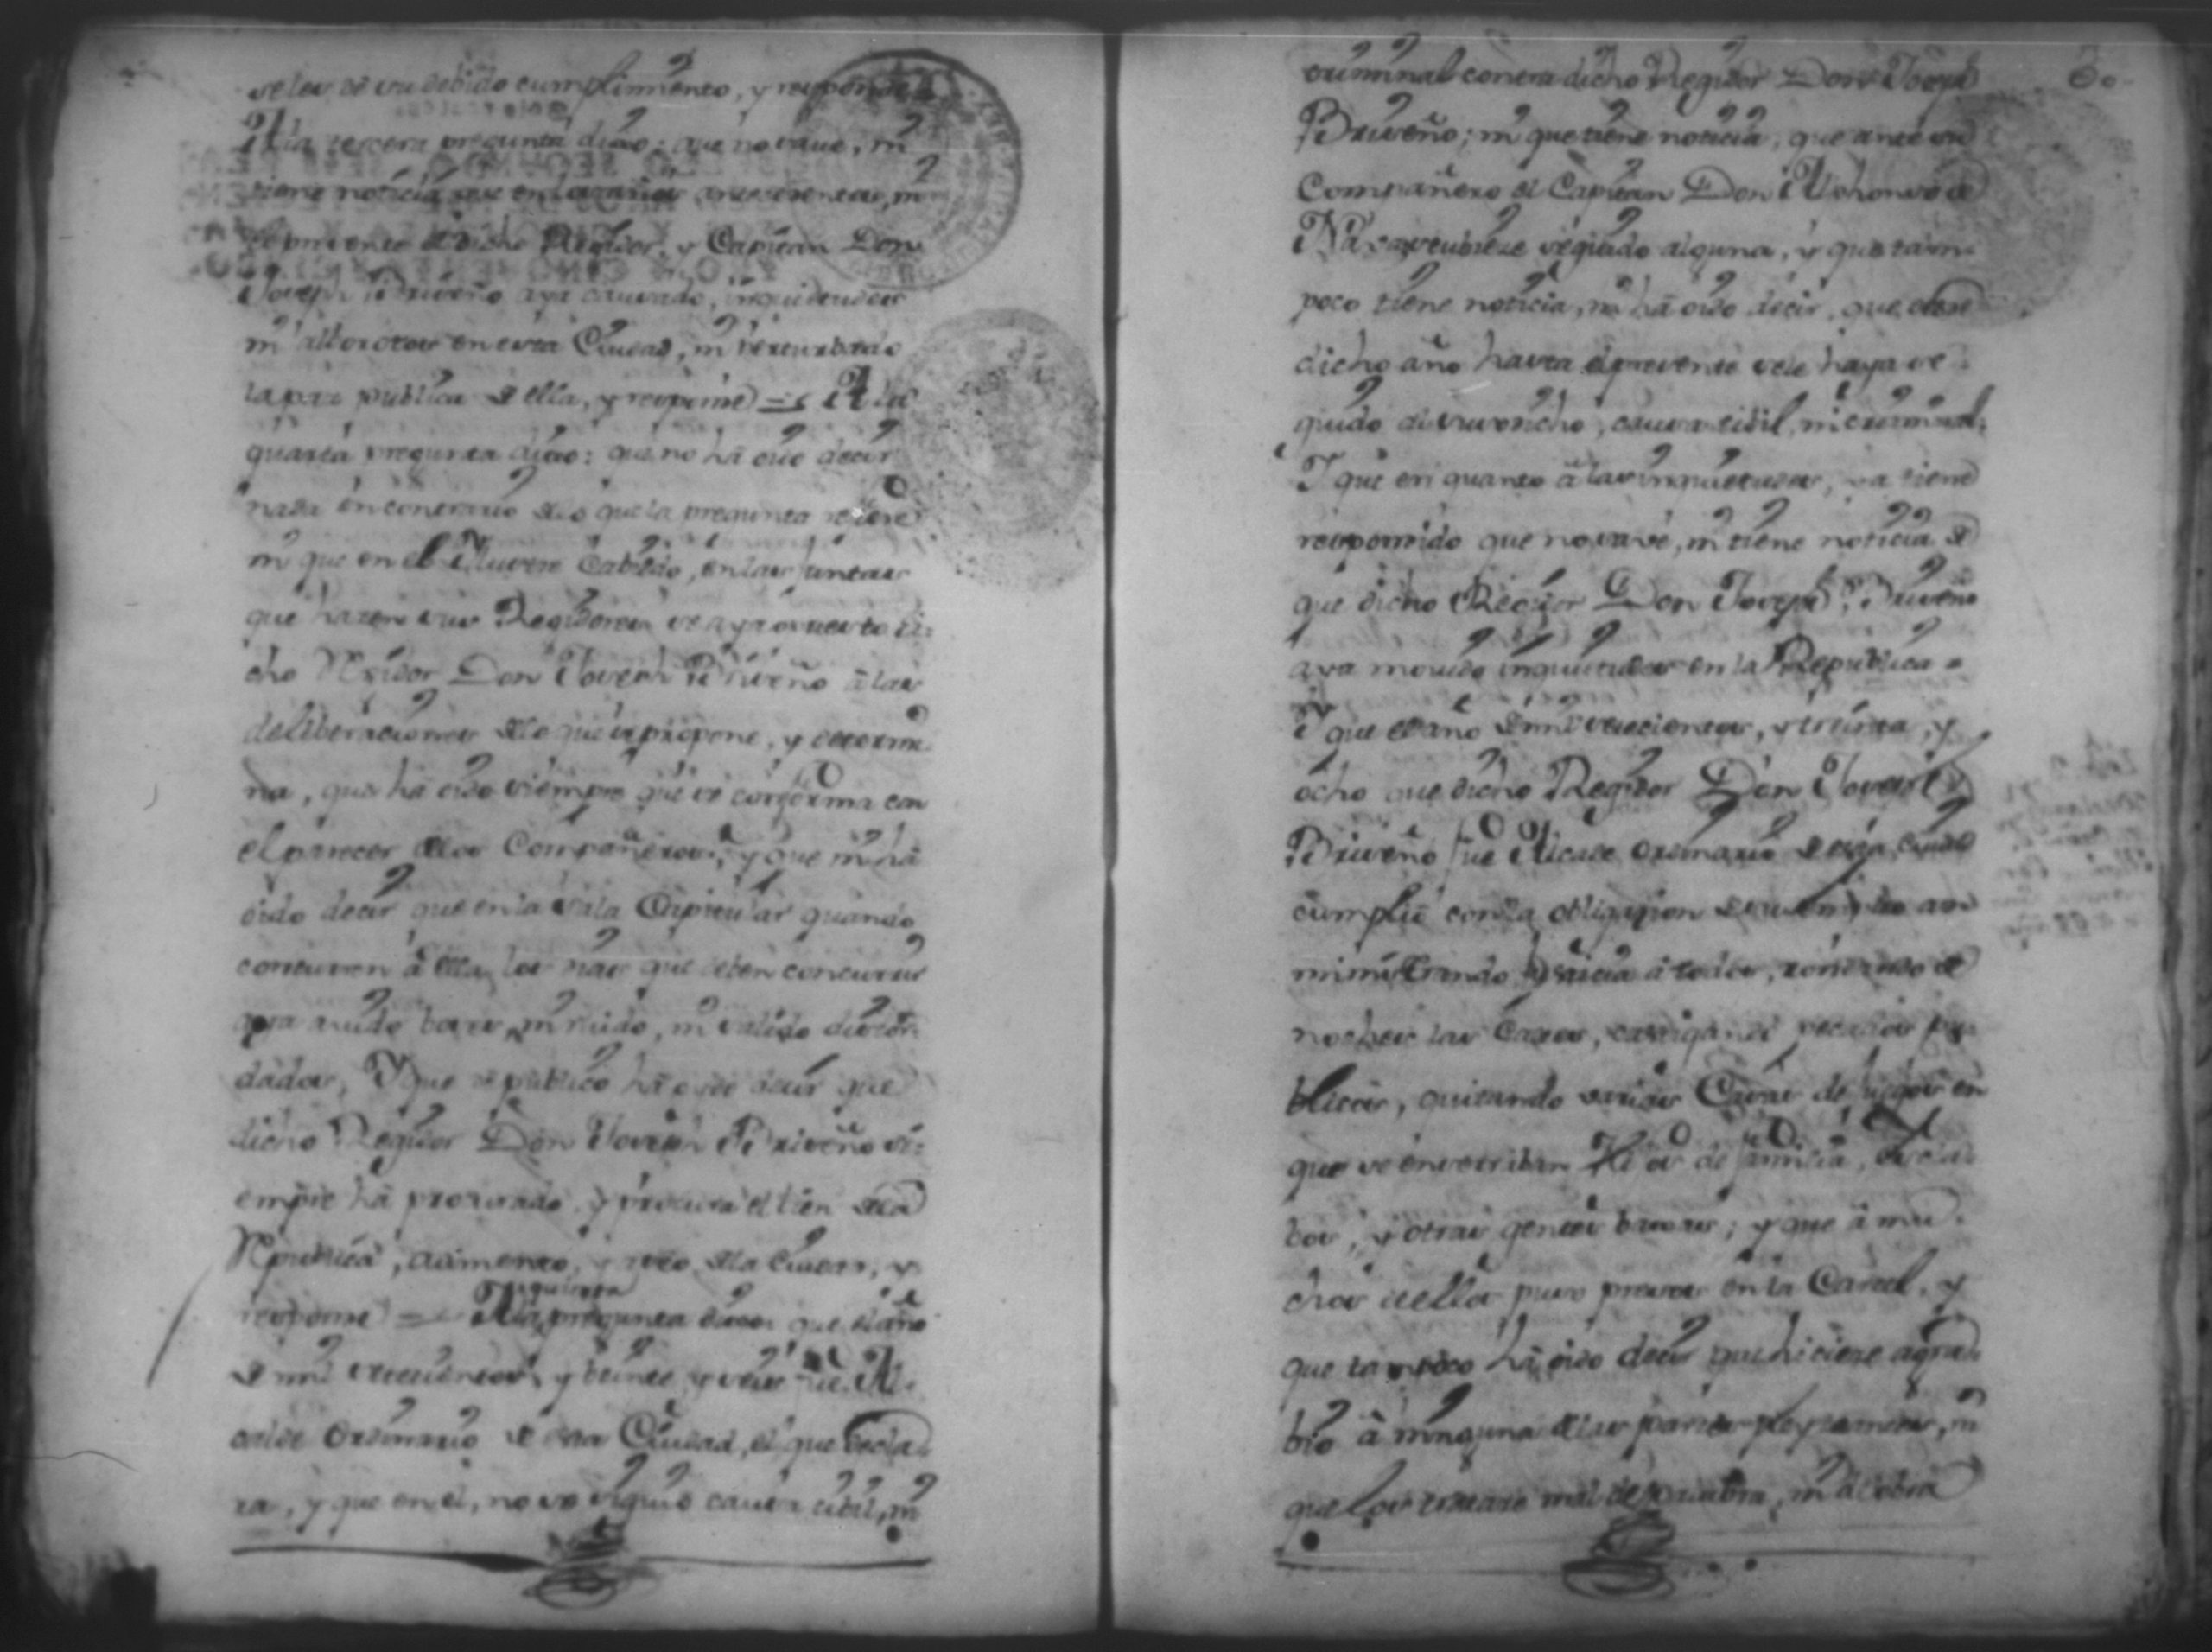 se les dé su debido cumplimiento, y responde
A la tercera pregunta dixo: que no save, ni
tiene noticia que en los años antecedentes, ni
el presente el dicho Regidor, y Capitan Don
Joseph Briseño aya causado, inquietudes
ni alborotos en esta Ciudad, ni perturbado
la paz publica de ella, y responde = A la
quarta pregunta dixo: que no hâ oido decir
nada en contrario de lo que la pregunta refiere
ni que en el Ilustre Cabildo, en las juntas
que hazen sus Regidores se aya opuesto di-
cho Rexidor Don Joseph Briseño â las
deliberaciones de lo que se propone, y determi-
na, que hâ oido siempre que se conforma con
el parecer de los Compañeros, y que ni hâ
oido decir que en la sala Capitular quando
concurren â ella, los mas que deben concurrir
aya avido bozes, ni ruido, ni salido discor-
dados, Y que de publico hâ oido decir que
dicho Regidor Don Joseph Briseño si-
empre hâ procurado, y procura el bien de la
Republica, aumento, y de la Ciudad, y
responde = A la quinta pregunta dixo: que el año
de mil setecientos, y veinte, y seis fue Al-
calde Ordinario de esta Ciudad, el que decla-
ra, y que en el, no se siguio causa cibil, ni
criminal contra dicho Regidor Don Joseph
Briseño; ni que tiene noticia, que ante su
Compañero el Capitan Don Alphonso de
se hubiese seguido alguna, y que tam-
poco tiene noticia, ni hâ oido decir, que desde
dicho año hasta el presente se le haya se-
guido al susodicho, causa cibil, ni criminal,
Y que en quanto â las inquietudes, ya tiene
respondido que no save, ni tiene noticia de
que dicho Regidor Don Joseph Briseño
aya movido inquietudes en la Republica =
Y que el año de mil setecientos, y treinta, y
ocho que dicho Regidor Don Joseph
Briseño fue Alcalde Ordinario de esta Ciudad
cumplió con la obligacion de su empleo ad-
ministrando Justicia â todos, rondando de
noches las Casas, castigando pecados pu-
blicos, quitando varias Casas de juegos en
que se entretenian Hijos de familia, Escla-
bos, y otras gentes baxas; y que â mu-
chos de ellos puso presos en la Carcel, y
que tampoco hâ oido decir que hiciese agra-
bio â ninguna de las partes pleyteantes, ni
que los tratase mal de palabra, ni de obra